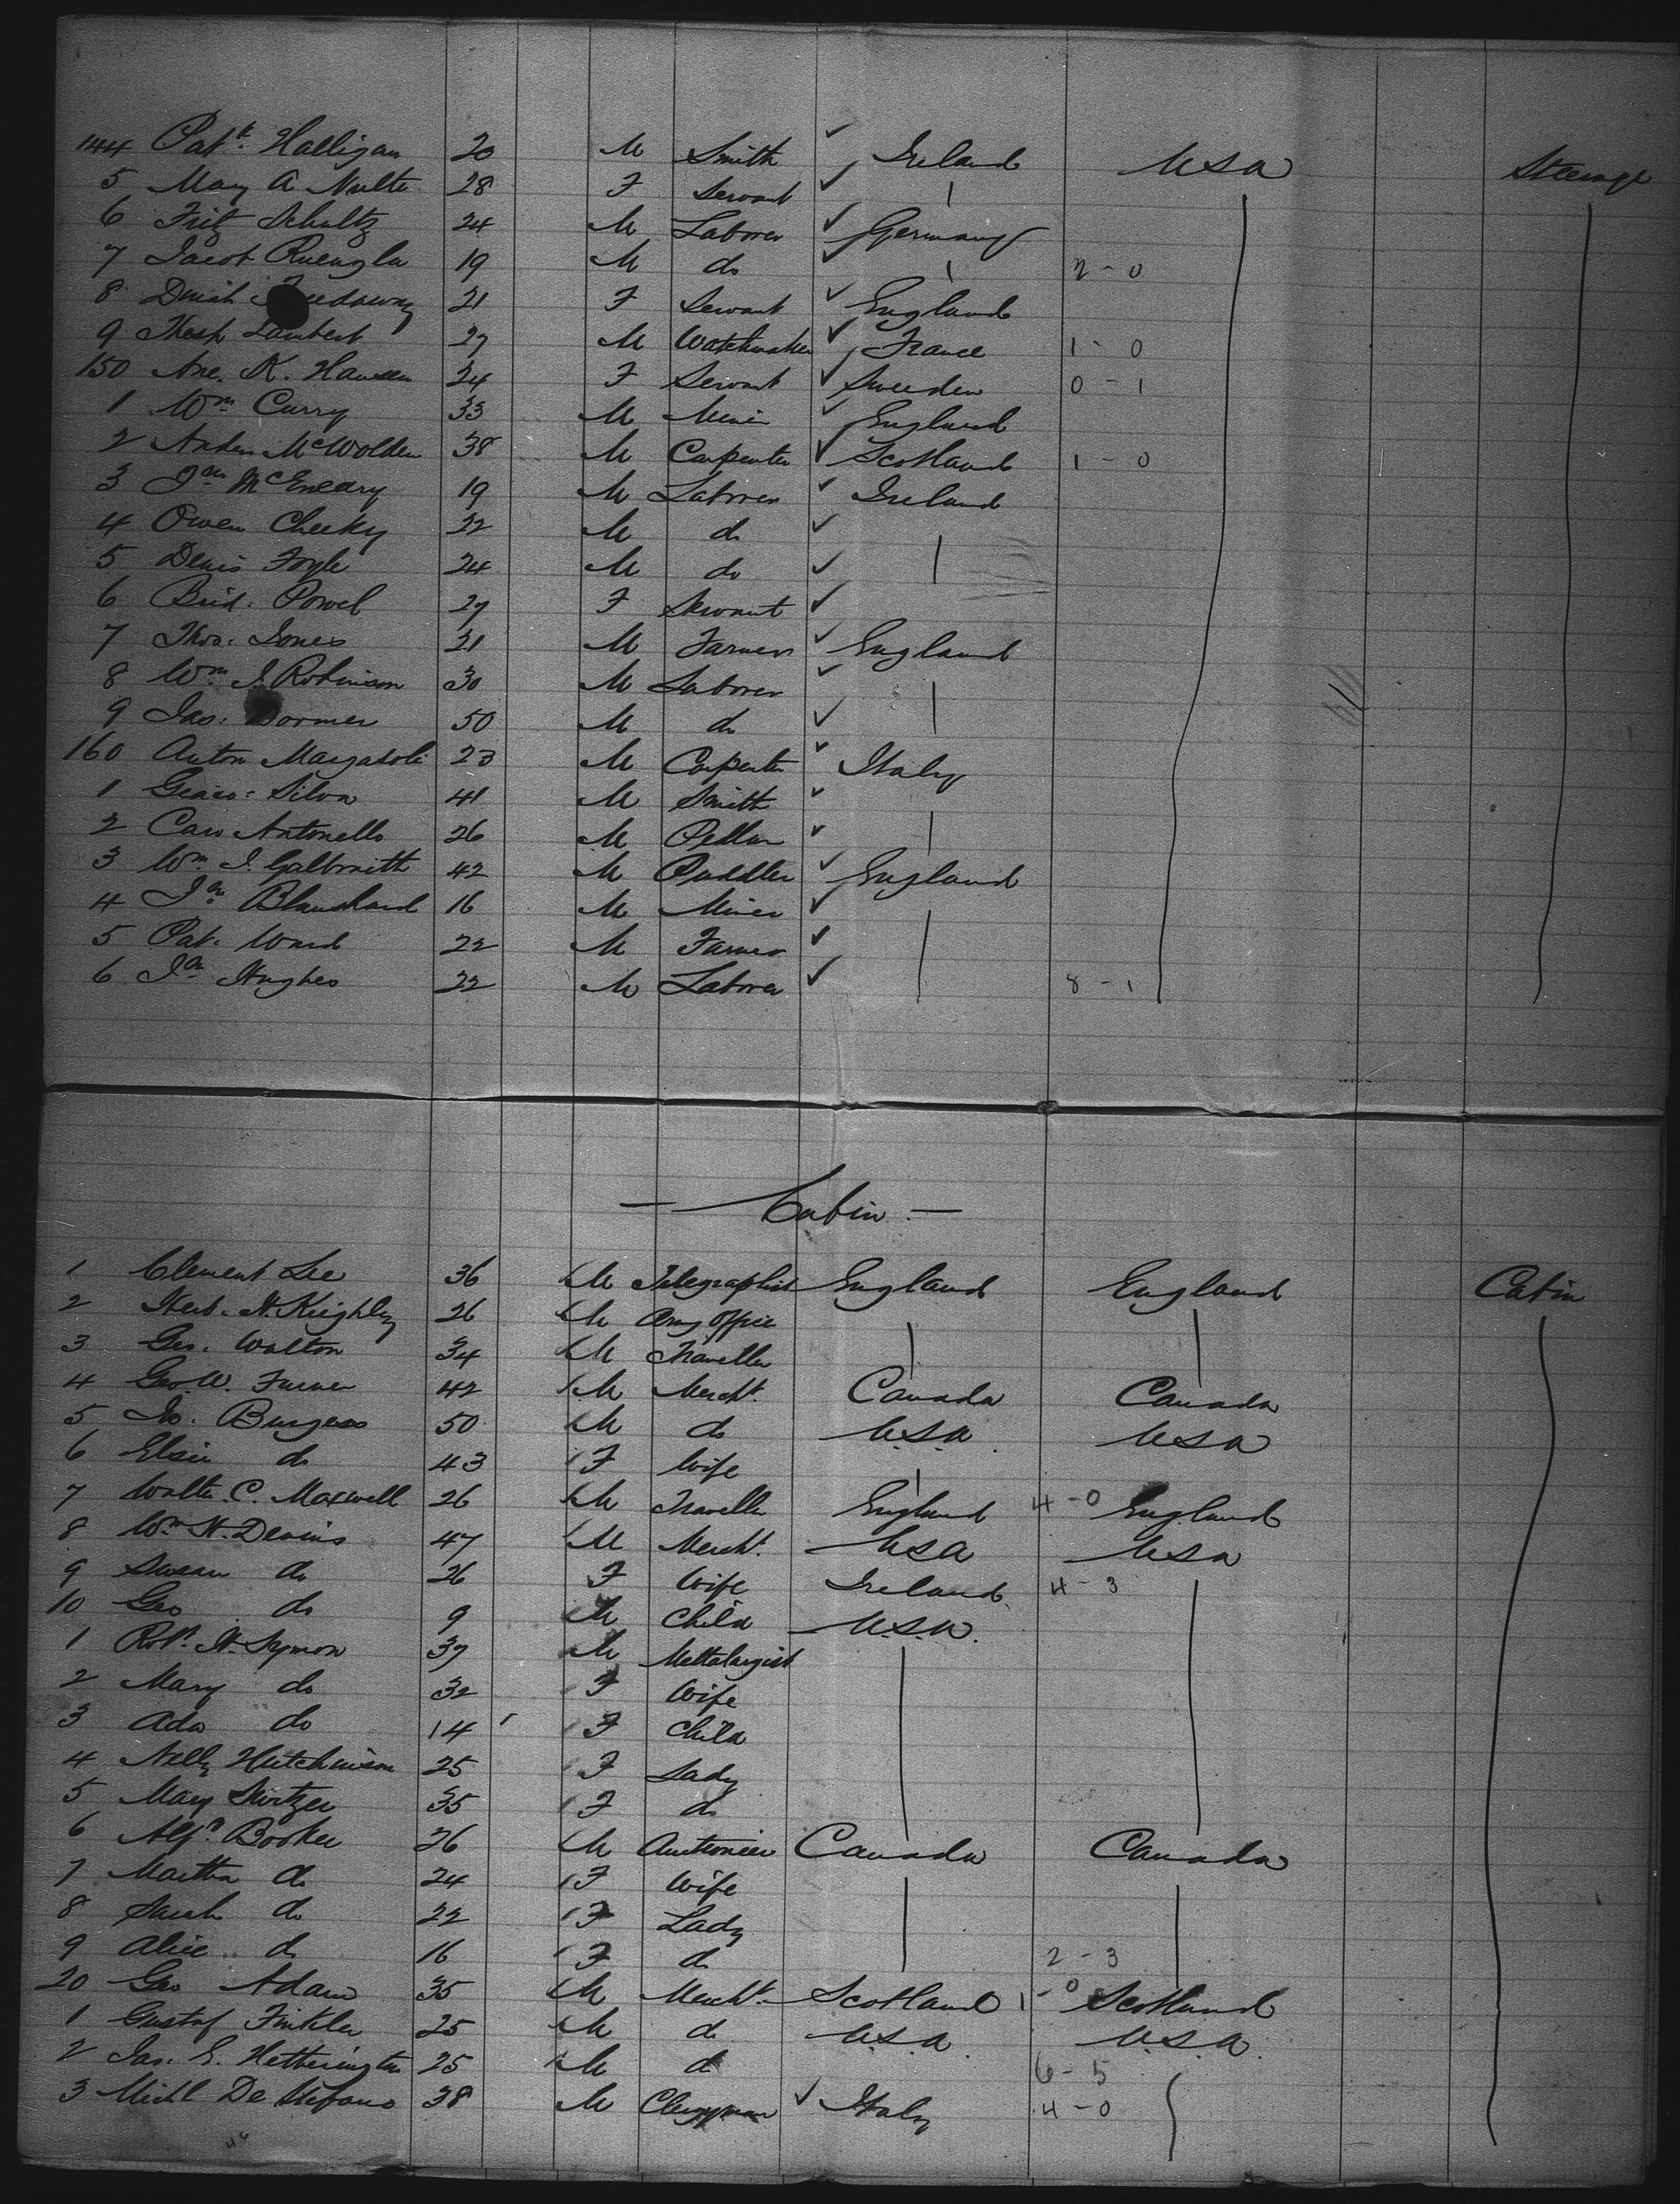 144 Patk. Halligan 20 M Smith Ireland USA Steerage
5 Mary A Nulte 28 F Servant
6 Fritz Schultz 24 M Laborer Germany
7 Jacob 19 M do 2 - 0
8 21 F Servant England
9 Lambert 27 M Watchmaker France 1 - 0
150 Ane. K. Hansen 24 F Servant Sweeden 0 - 1
1 Wm Curry 33 M Miner England
2 McWolden 38 M Carpenter Scotland 1 - 0
3 Jno McEneary 19 M Laborer Ireland
4 Owen Cheeky 22 M do
5 Denis Foyle 24 M do
6 Brid. Powel 27 F Servant
7 Thos. Jones 21 M Farmer England
8 Wm J. Robinson 30 M Laborer
9 Jas. 50 M do
160 Anton 23 M Carpenter Italy
1 Silva 41 M Smith
2 Antonello 26 M Pedlar
3 Wm J. Galbraith 42 M Puddler England
4 Jno Blanchard 16 M Miner
5 Pat. Ward 22 M Farmer
6 Jno Hughes 22 M Laborer 8 - 1
— Cabin —
1 Clement Lee 36 M Telegraphist England England Cabin
2 Herb. H. Keighley 26 M Army Office
3 Geo. Walton 34 M Traveller
4 Geo. W. Turner 42 M Mercht. Canada Canada
5 Jo. Burgess 50 M do U.S.A. USA
6 Elsie do 43 F Wife
7 Walter. C. Maxwell 26 M Traveller England 4 - 0 England
8 Wm H. Devins 47 M Mercht. USA USA
9 Susan do 26 F Wife Ireland 4 - 3
10 Geo do 9 M Child U.S.A.
1 Robt. H. Symon 37 M Mettalurgist
2 Mary do 32 F Wife
3 Ada do 14 F Child
4 Nelly Hutchinson 25 F Lady
5 Mary Switzer 35 F do
6 Alfd. Booker 26 M Auctioneer Canada Canada
7 Martha do 24 F Wife
8 Sarah do 22 F Lady
9 Alice do 16 F do 2 - 3
20 Geo Adam 35 M Mercht. Scotland 1 - 0 Scotland
1 Gustaf Finkler 25 M do U.S.A. U.S.A.
2 Jas. E. Hetherington 25 M do 6 - 5
3 Michl De Stefano 38 M Clergyman Italy 4 - 0